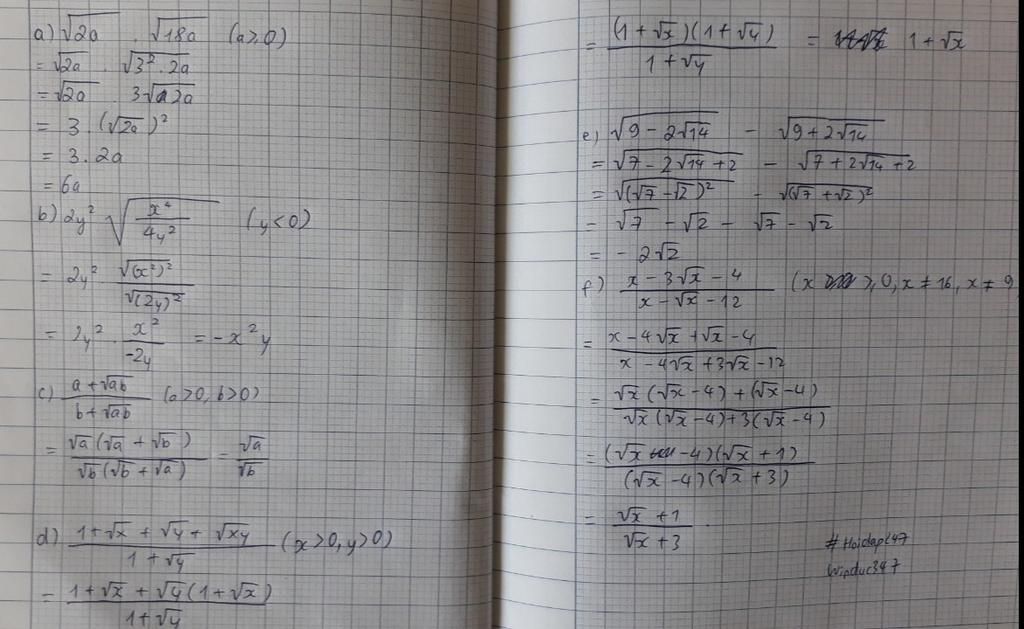 a) √2a . √18a (a>0)
= √2a . √3² . 2a
= √2a . 3√2a
= 3 . (√2a)²
= 3 . 2a
= 6a
b) 2y² √(x⁴/4y²) (y<0)
= 2y² . √(x²)²/√(2y)²
= 2y² . x²/-2y = -x²y
c) (a+√ab)/(b+√ab) (a>0, b>0)
= √a(√a + √b)/√b(√b + √a) = √a/√b
d) (1+√x + √y + √xy)/(1+√y) (x>0, y>0)
= (1+√x + √y(1+√x))/(1+√y)
= (1+√x)(1+√y)/(1+√y) = 1+√x
e) √(9-2√14) - √(9+2√14)
= √(7-2√14+2) - √(7+2√14+2)
= √(√7-√2)² - √(√7+√2)²
= √7 - √2 - √7 - √2
= -2√2
f) (x-3√x-4)/(x-√x-12) (x ⩾ 0, x ≠ 16, x ≠ 9
= (x-4√x+√x-4)/(x-4√x+3√x-12)
= (√x(√x-4)+(√x-4))/(√x(√x-4)+3(√x-4))
= (√x-4)(√x+1)/(√x-4)(√x+3)
= (√x+1)/(√x+3)
#Hoidap247
Winduc347